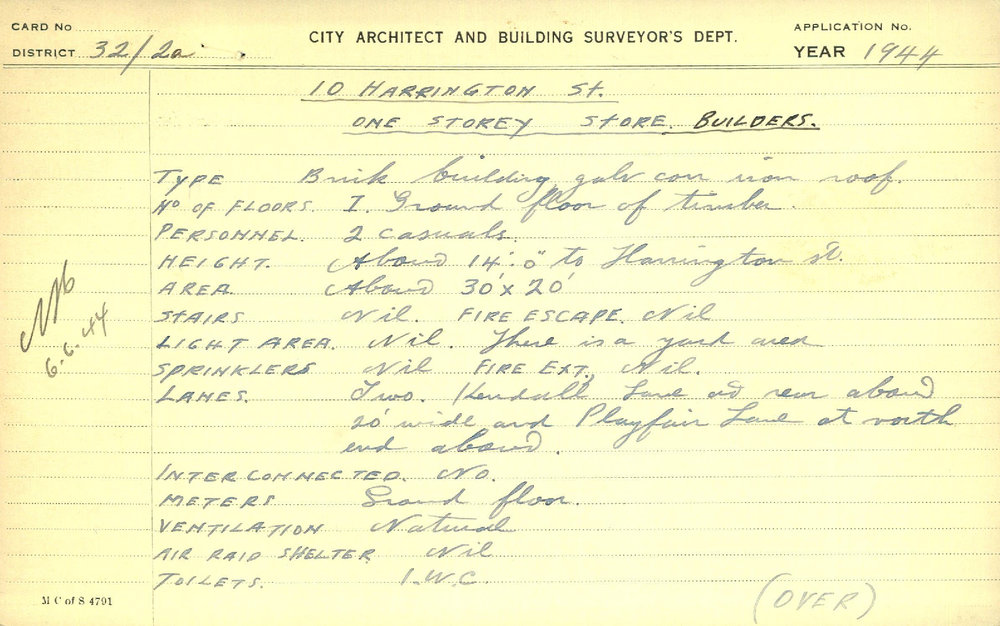 CARD No
DISTRICT 32/2a
CITY ARCHITECT AND BUILDING SURVEYOR'S DEPT.
APPLICATION No.
YEAR 1944
10 HARRINGTON St.
ONE STOREY STORE. BUILDERS.
TYPE Brick building galv corr iron roof.
No OF FLOORS. I. Ground floor of timber.
PERSONNEL. 2 casuals.
HEIGHT. About 14'.0" to Harrington st.
AREA About 30' x 20'
STAIRS Nil. FIRE ESCAPE. Nil
LIGHT AREA. Nil. There is a yard area
SPRINKLERS Nil FIRE EXT. Nil.
LANES. Two. Kendall Lane at rear about
20' wide and Playfair Lane at north
end about.
INTERCONNECTED. NO.
METERS Ground floor.
VENTILATION Natural
AIR RAID SHELTER Nil
TOILETS. 1.W.C.
6.6.44
M C of S 4791
(OVER)